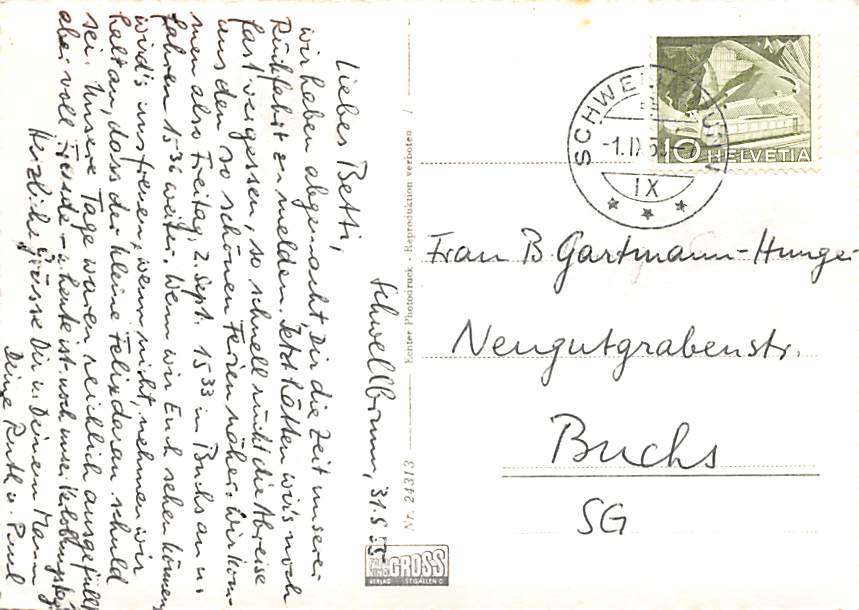 Schwellbrunn, 31.8.55
Liebes Betti,
wir haben abgemacht, Dir die Zeit unserer
Rückfahrt zu melden. Jetzt hätten wir's noch
fast vergessen, so schnell rückt die Abreise
aus den so schönen Ferien näher. Wir kom-
men also Freitag, 2. Sept. 15 33 in Buchs an u.
fahren 15 36 weiter. Wenn wir Euch sehen können,
wird's uns freuen, wenn nicht, nehmen wir
halt an, dass der kleine Felix daran schuld
sei. Unsere Tage waren reichlich ausgefüllt
aber voll Freude – u. heute ist noch unser Verlobungstag
Herzliche Grüsse Dir u. Deinem Mann
Deine Ruth u. Paul
Nr. 24313 Echter Photodruck - Reproduktion verboten /
GROSS
VERLAG ST.GALLEN O
SCHWELLBRUNN
-1.IX.55-7
IX
10 HELVETIA
Frau B Gartmann-Hunger
Neugutgrabenstr.
Buchs
SG